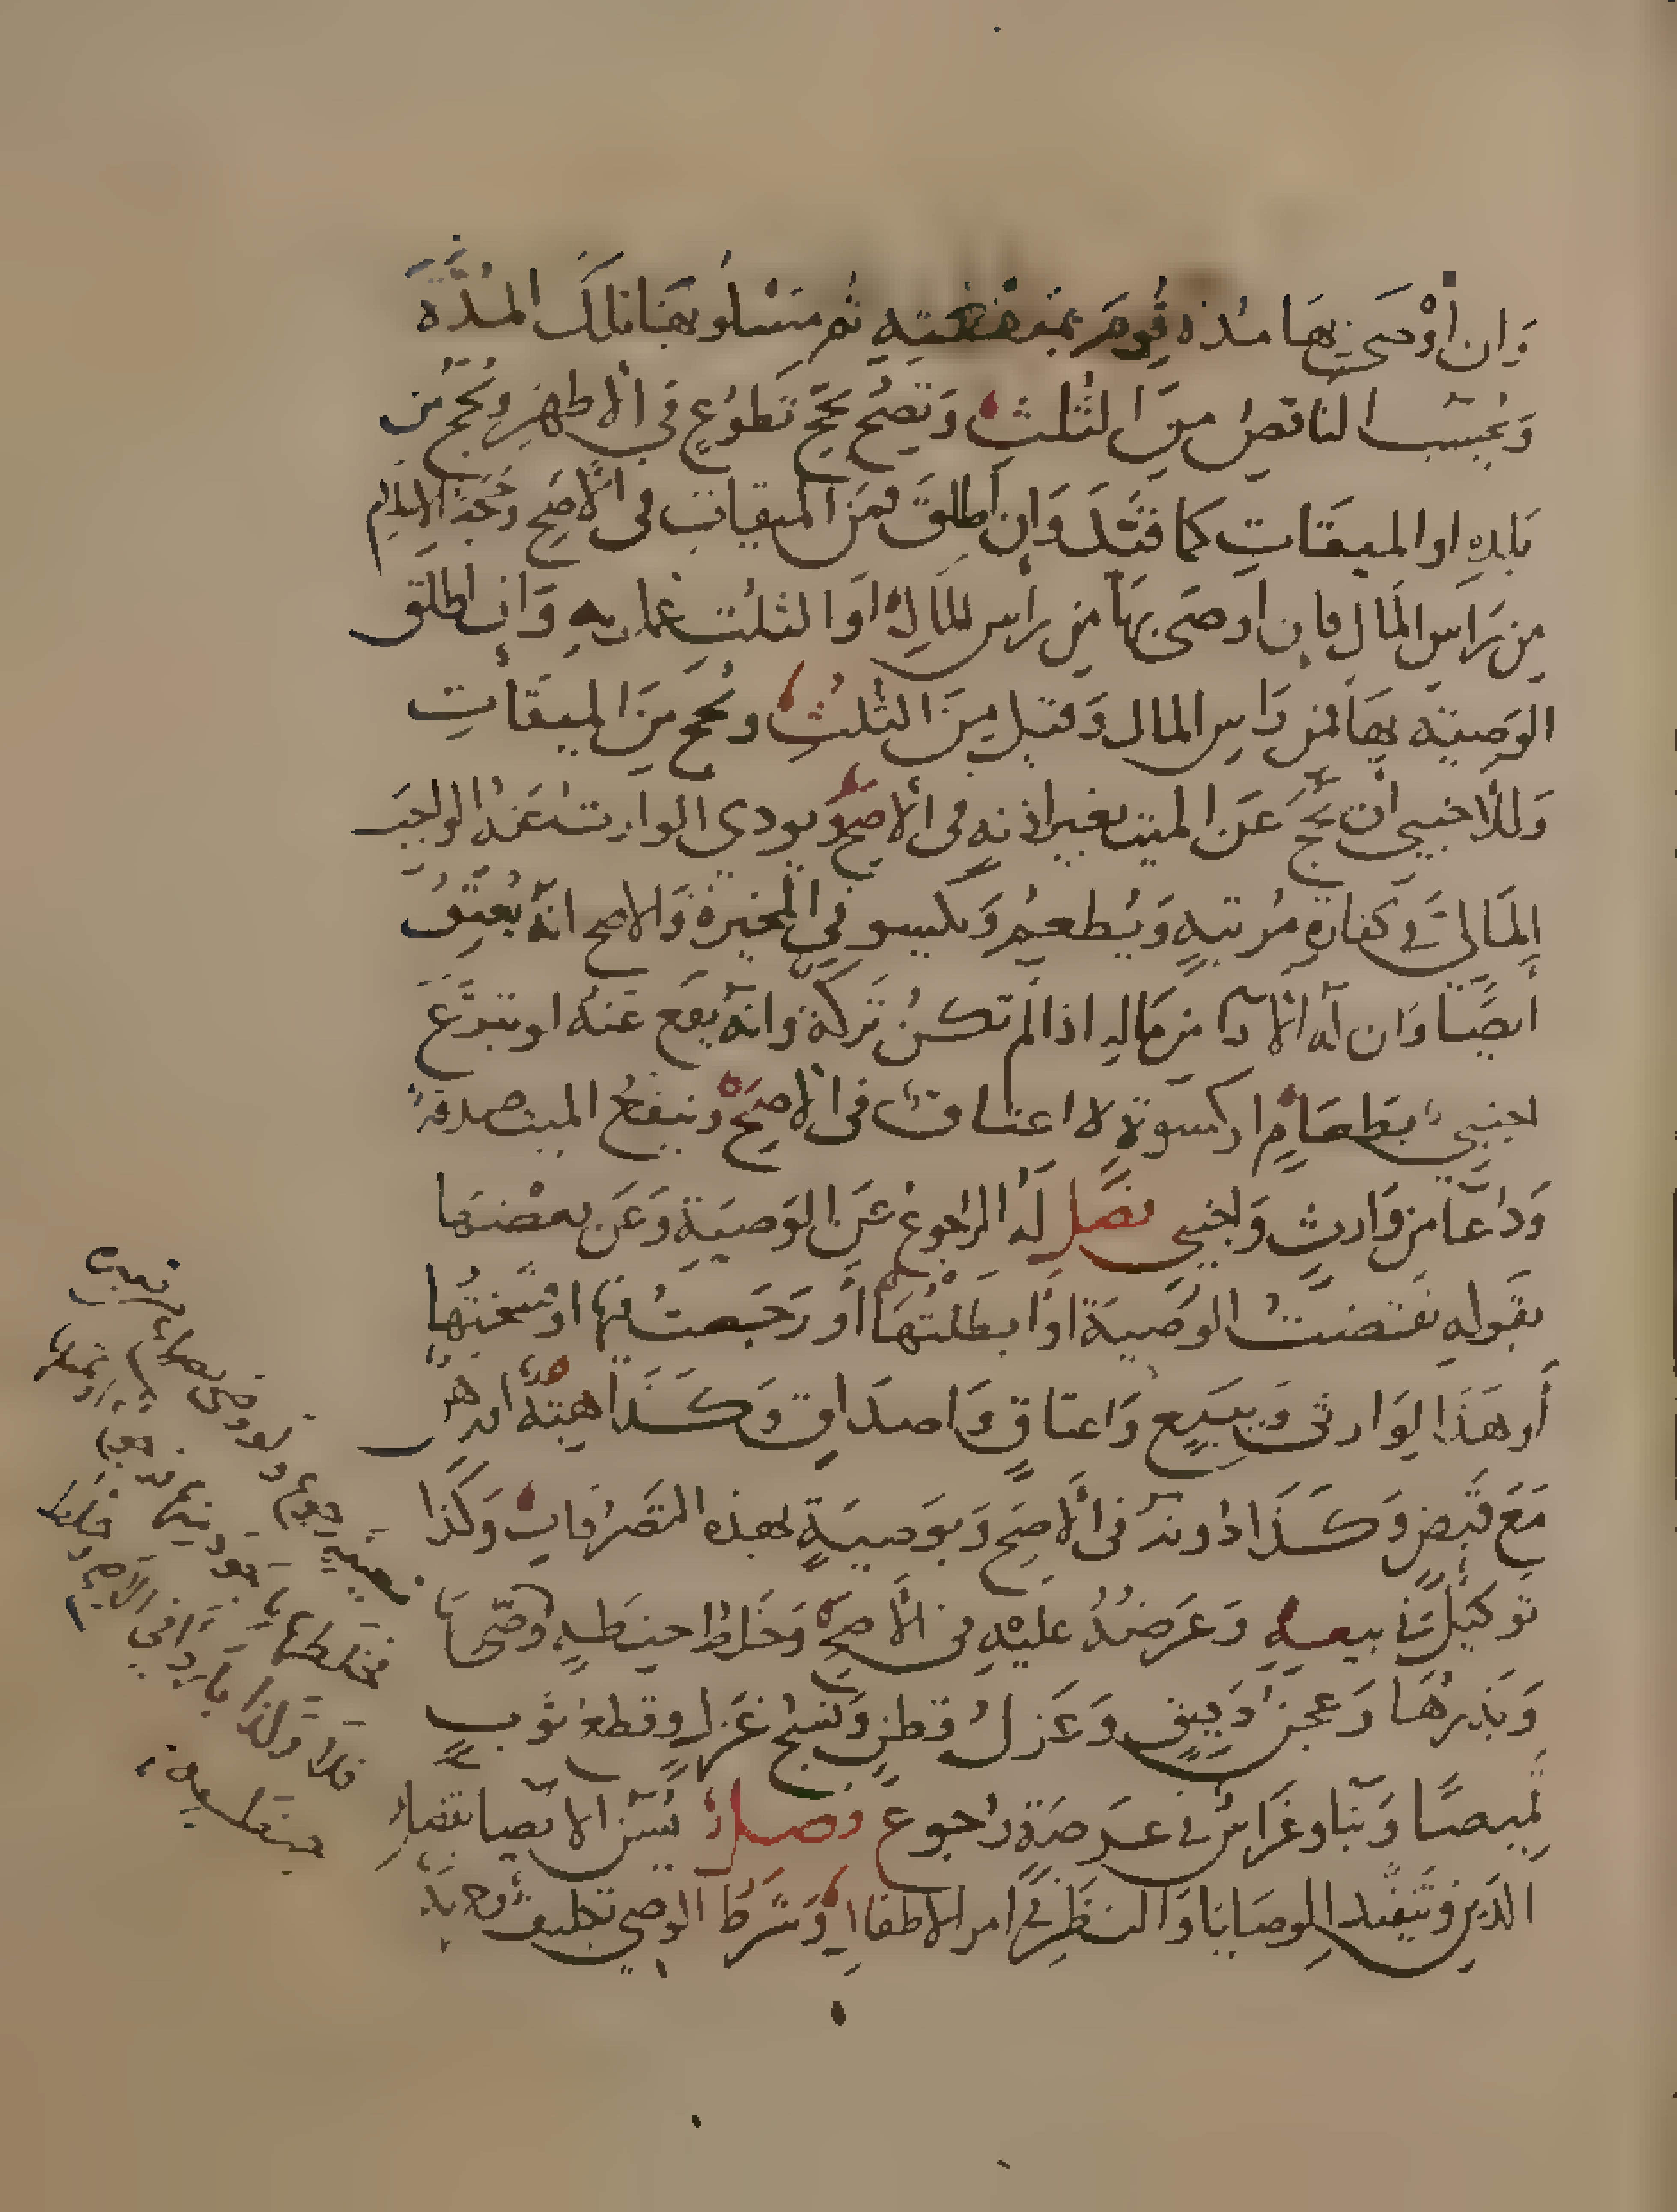 وَان أَوْصَى بِهَا مدة قُوِّمَ بمنفعته ثم مَسْلُوبهَا تلكَ المُدَّة
وَيُحْسَبُ الناقصُ مِنَ الثُلثِ وَتَصِحُّ بحَجِّ تَطوُّعٍ في الأظهَرِ ويُحَجُّ من
بَلَدِهِ او الميقَاتِ كما قَيَّدَ وَان أطلقَ فمنَ الميقاتِ في الأصَحِّ وحَجَّة الاسلام
مِن رَاسِ المَال فان اوصَى بِهَا مِن رَأس المَالِ اوَ الثلثِ عمل بِهِ وَان اطلَقَ
الوَصيَّة بِهَا فمن رَاسِ المال وَقيل مِنَ الثلُثِ ويُحَج مِنَ الميقَاتِ
وَللأجنبيِ أن يحُجَّ عَنَ الميت بغير اذنهِ في الأصَحِّ ويودى الوارث عَنهُ الواجِبَ
المَاليَّ في كفارةٍ مُرتبةٍ وَيُطعِمُ وَيكسو في المُخَيرةِ وَالاصح انهُ يُعتِقُ
أيضًا وَان له الأدآ مِن مَالِهِ اذا لَم تكنُ تَركةٌ وَانهُ يَقع عَنهُ لو تبرَّعَ
اجنبيٌّ بطَعَامٍ او كسوةٍ لا اعتاقٍ في الأصَحِّ وتنفعُ الميت صدقةٌ
وَدعَآ من وَارثٍ وَاجنبي فصَل لَهُ الرُجوعُ عَنِ الوَصيَّةِ وَعَن بعْضهَا
بقَولهِ نَقضتُ الوَصيَةَ اوَ ابطَلتُهَا أو رَجَعتُ فيها او فسَختُها
أَو هَذَا لِوَارثي وَببَيعٍ وَاعتاقٍ وَاصدَاقٍ وَكَذَا هِبةٌ او رهن
مَعَ قَبضٍ وَكَذَا دُونَهُ في الأصَحِّ وَبوَصيةٍ بهذه التَصَرُّفاتِ وَكَذَا
تَوكيلٌ في بيعهِ وَعَرضُهُ عَليْهِ في الأصَحِّ وَخَلطُ حِنطَةٍ وَصَّى بها
وَبَذْرُهَا وَعجنُ دَقيقٍ وَغَزلُ قطنٍ وَنسجُ غَزلٍ وقطعُ ثوبٍ
قَميصًا وَبنآ وغرَاسٌ في عَرصَةٍ رُجوعٌ فصلٌ يُسَنُّ الايصا بقضاءِ
الدَينِ وَتنفيذ الوصَايَا وَالنظَرِ في امر الاطفال وَشَرطُ الوصيِّ تكليفٌ وحرية
فخلطها
فلا وَلَذا بارْدَا في الأصح